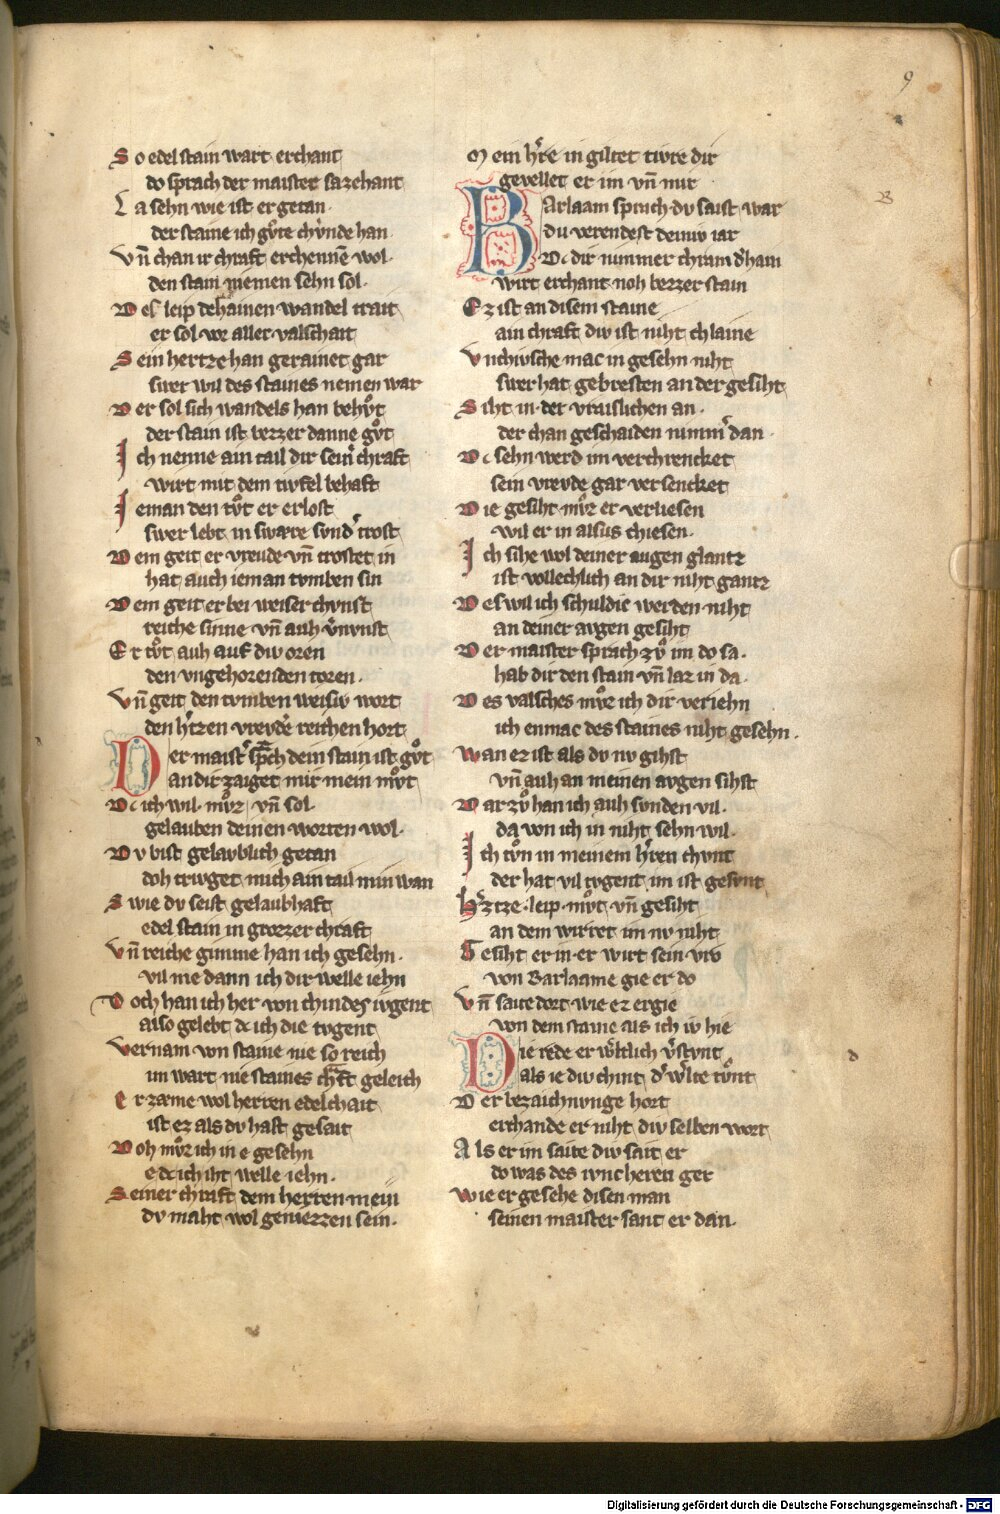 9
So edel stain wart erchant
do sprach der maister sazehant
La sehn wie ist er getan
der staine ich gůte chvnde han
Vn̄ chan ir chraft erchennē wol
den stain niemen sehn sol
Des leip dehainen wandel trait
er sol we aller valschait
Sein hertze han gerainet gar
swer wil des staines nemen war
Der sol sich wandels han behůt
der stain ist bezzer danne gůt
Ich nenne ain tail dir sein̾ chraft
wirt mit dem tivfel behaft
Ieman den tůt er erlost
swer lebt in swære svnd̾ trost
Dem geit er vreude vn̄ trostet in
hat auch ieman tvmben sin
Dem geit er bei weiser chvnst
reiche sinne vn̄ auh v̾nvnst
Er tůt auh auf div oren
den vngehorenden toren
Vn̄ geit den tvmben weisiv wort
den h̾tzen vreydē reichen hort
Der maist̾ sprach dein stain ist gůt
an dir zaiget mir mein můt
Dc ich wil můz vn̄ sol
gelauben deinen worten wol
Dv bist gelavblich getan
doh trivget mich ain tail min wan
Swie dv seist gelaubhaft
edel stain in grozzer chraft
Vn̄ reiche gimme han ich gesehn
vil me dann ich dir welle iehn
Doch han ich her von chindes ivgent
also gelebt dc ich die tvgent
Vernam von staine nie so reich
im wart nie staines chraft geleich
Er zæme wol herren edelchait
ist ez als dv hast gesait
Doh můz ich in e gesehn
e dc ich iht welle iehn
Seiner chraft dem herren mein
dv maht wol geniezzen sein
Mein h̾re in giltet tivre dir
gevellet er im vn̄ mir
Barlaam sprach dv saist war
du verendest deiniv iar
Dc dir nimmer chtum d̾ham
wirt erchant noh bezzer stain
Ez ist an disem staine
ain chraft div ist niht chlaine
Vnchivsche mac in gesehn niht
swer hat gebresten an der gesiht
Siht in der vraislichen an
der chan geschaiden nimm̾ dan
Dc sehn werd im verchrencket
sein vreyde gar versencket
Die gesiht můz er verliesen
wil er in alsus chiesen
Ich sihe wol deiner augen glantz
ist vollechlich an dir niht gantz
Des wil ich schuldic werden niht
an deiner avgen gesiht
Der maister sprach zů im do sa
hab dir den stain vn̄ laz in da
Des valsches můz ich dir veriehn
ich enmac des staines niht gesehn
Wan ez ist als dv nv gihst
vn̄ auh an meinen avgen sihst
Darzů han ich auh svnden vil
da von ich in niht sehn wil
Ich tůn in meinem h̾ren chvnt
der hat vil tvgent im ist gesvnt
H̾tze leip můt vn̄ gesiht
an dem wirret im nv niht
Gesiht er in er wirt sein vro
von Barlaame gie er do
Vn̄ saite dort wie ez ergie
von dem staine als ich iv hie
Die rede er w̾ltlich v̾stvnt
als ie div chint d̾ w̾lte tůnt
Der bezaichnvnge hort
erchande er niht div selben wort
Als er im saite div sait er
do was des ivncherren ger
Wie er gesehe disen man
seinen maister sant er dan
B
d
Digitalisierung gefördert durch die Deutsche Forschungsgemeinschaft - DFG